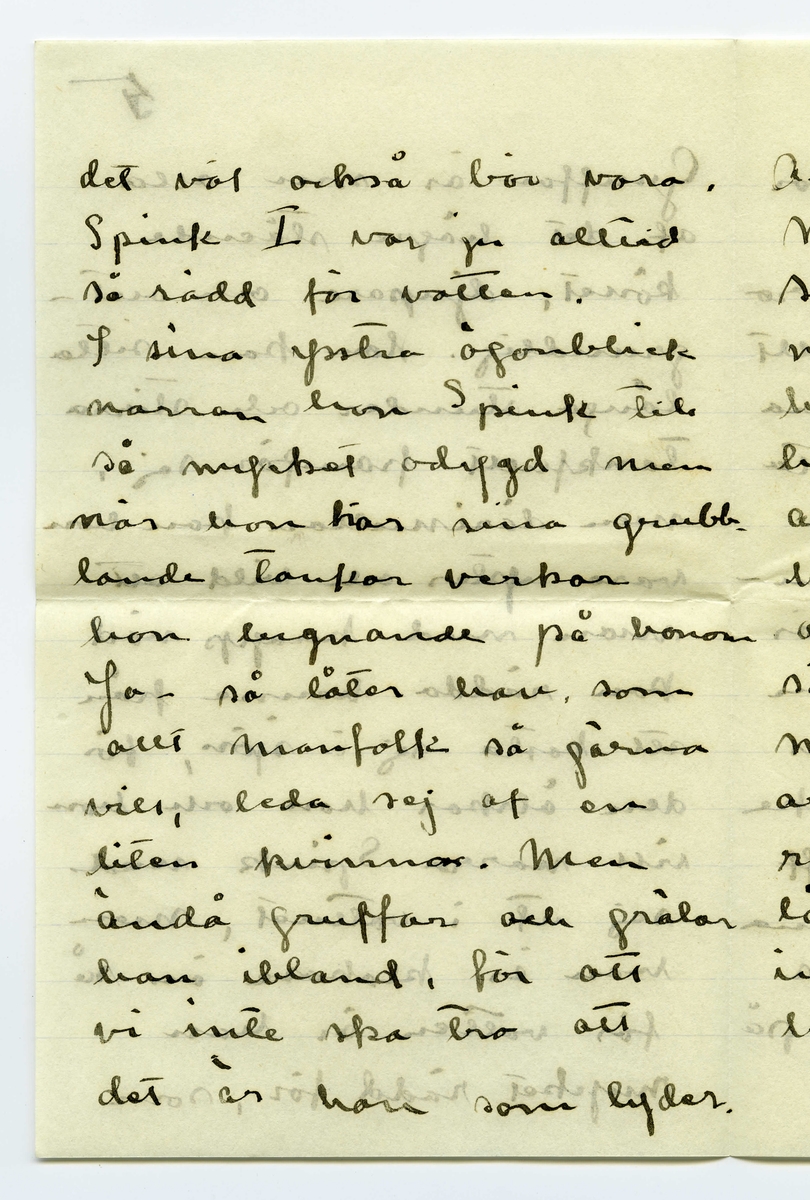 det väl också bör vara.
Spink I var ju alltid
så rädd för vatten.
I sina ystra ögonblick
narrar hon Spink till
så mycket odygd men
när hon har sina grubb-
lande tankar verkar
hon lugnande på honom
Ja - så låter han, som
allt manfolk så gärna
vill, leda sej af en
liten kvinna. Men
ändå gruffar och grälar
han ibland, för att
vi inte ska tro att
det är han som lyder.